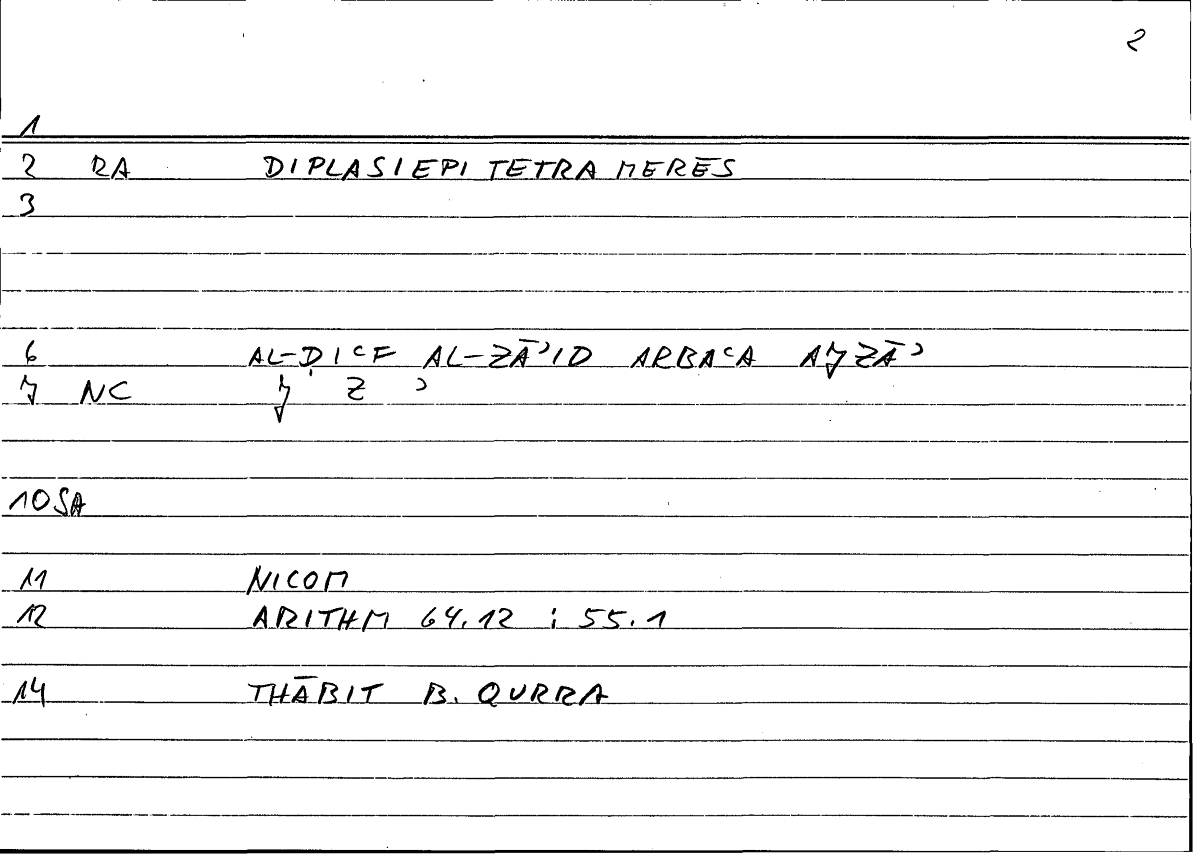 2
1
2 RA DIPLASIEPI TETRA MERĒS
3
6 AL-ḌIʿF AL-ZĀʾID ARBAʿA AJZĀʾ
7 NC J Z ʾ
10 SA
11 NICOM
12 ARITHM 64.12 ; 55.1
14 THĀBIT B. QURRA